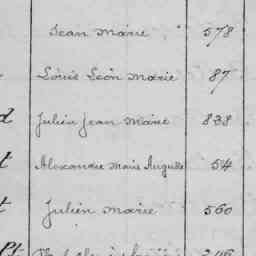 Jean Marie 578
Louis Léon Marie 87
d Julien Jean Marie 838
t Alexandre Marie Auguste 54
t Julien Marie 560